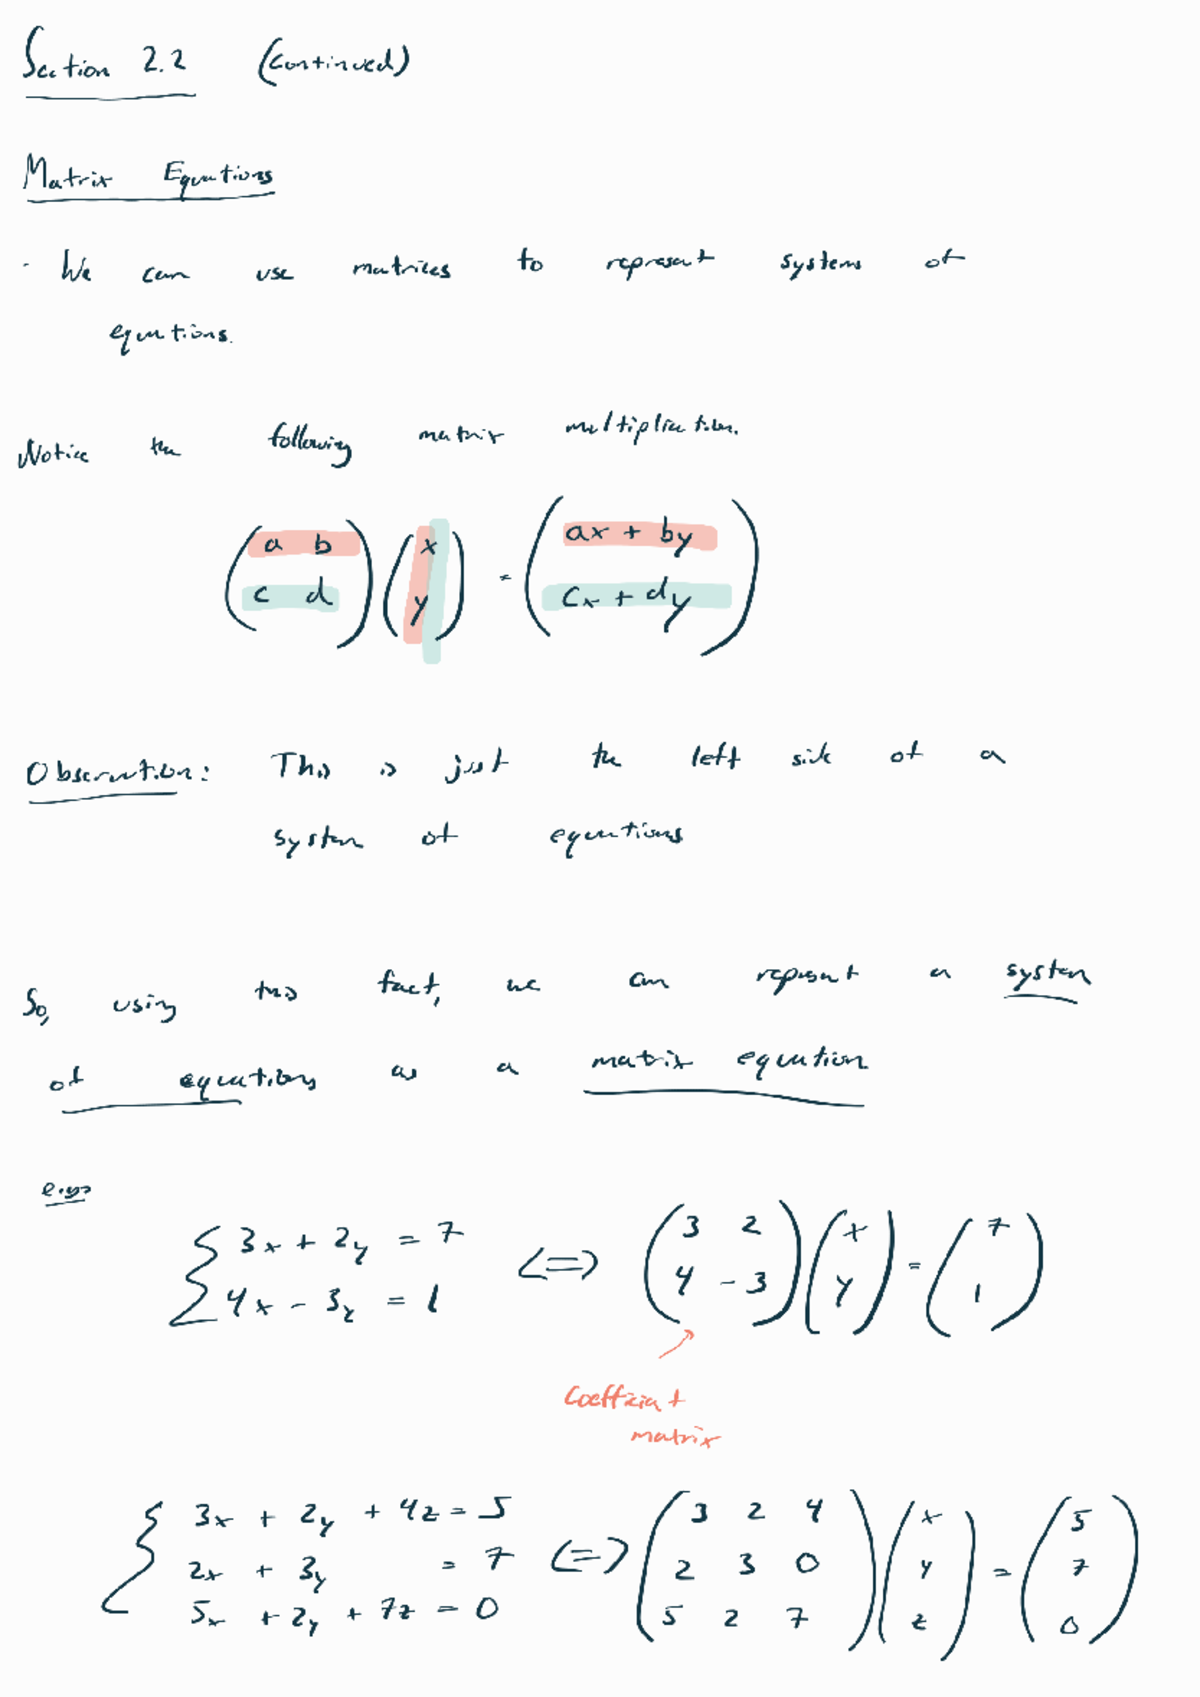 Section 2.2 (Continued)
Matrix Equations
· We can use matrices to represent systems of
equations.
Notice the following matrix multiplication.
(a b) (x) = (ax + by)
(c d) (y)   (cx + dy)
Observation: This is just the left side of a
system of equations
So, using this fact, we can represent a system
of equations as a matrix equation
e.g>
{ 3x + 2y = 7 <=> (3 2) (x) = (7)
{ 4x - 3y = 1     (4 -3) (y)   (1)
Coefficient
matrix
{ 3x + 2y + 4z = 5     (3 2 4) (x)   (5)
{ 2x + 3y = 7 <=> (2 3 0) (y) = (7)
{ 5x + 2y + 7z = 0     (5 2 7) (z)   (0)